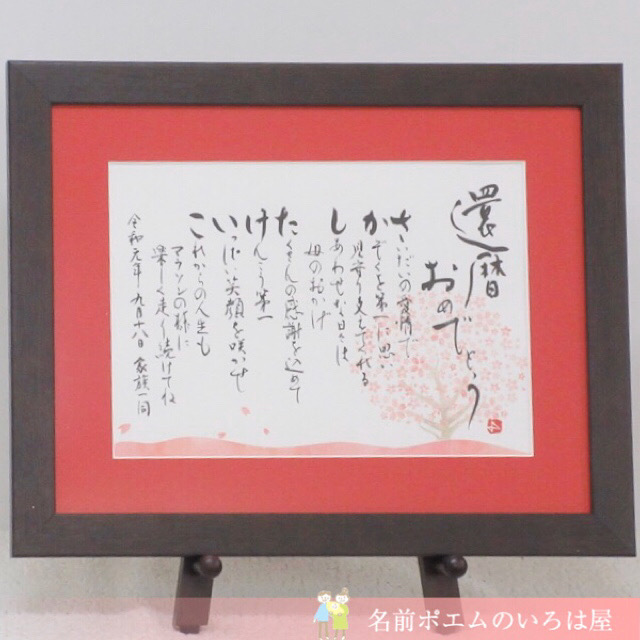 還暦
おめでとう
さいだいの愛情で
かぞくを第一に思い
見守り支えてくれる
しあわせな日々は
母のおかげ
たくさんの感謝を込めて
けんこう第一
いっぱい笑顔を咲かせ
これからの人生も
マラソンの様に
楽しく走り続けてね
令和元年 九月十八日 家族一同
名前ポエムのいろは屋